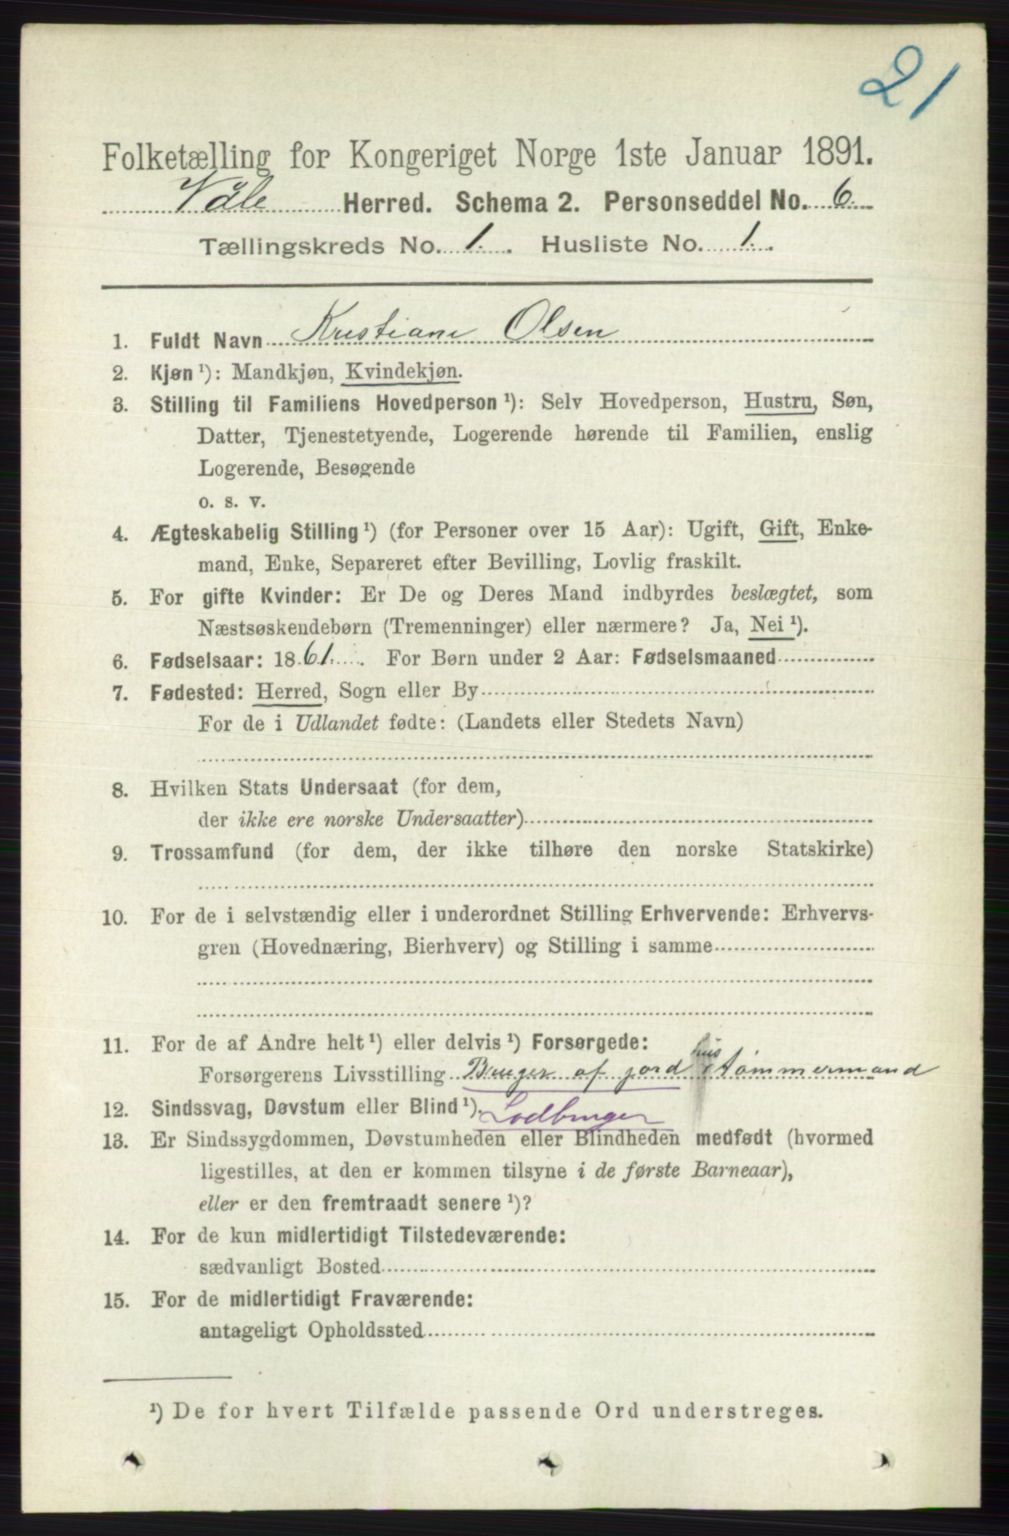 21
Folketælling for Kongeriget Norge 1ste Januar 1891.
Våle Herred. Schema 2. Personseddel No. 6.
Tællingskreds No. 1. Husliste No. 1.
1. Fuldt Navn Kristiane Olsen
2. Kjøn ¹): Mandkjøn, Kvindekjøn.
3. Stilling til Familiens Hovedperson ¹): Selv Hovedperson, Hustru, Søn,
Datter, Tjenestetyende, Logerende hørende til Familien, enslig
Logerende, Besøgende
o. s. v.
4. Ægteskabelig Stilling ¹) (for Personer over 15 Aar): Ugift, Gift, Enke-
mand, Enke, Separeret efter Bevilling, Lovlig fraskilt.
5. For gifte Kvinder: Er De og Deres Mand indbyrdes beslægtet, som
Næstsøskendebørn (Tremenninger) eller nærmere? Ja, Nei ¹).
6. Fødselsaar: 1861. For Børn under 2 Aar: Fødselsmaaned
7. Fødested: Herred, Sogn eller By
For de i Udlandet fødte: (Landets eller Stedets Navn)
8. Hvilken Stats Undersaat (for dem,
der ikke ere norske Undersaatter)
9. Trossamfund (for dem, der ikke tilhøre den norske Statskirke)
10. For de i selvstændig eller i underordnet Stilling Erhvervende: Erhvervs-
gren (Hovednæring, Bierhverv) og Stilling i samme
11. For de af Andre helt ¹) eller delvis ¹) Forsørgede:
hus
Forsørgerens Livsstilling Bruger af jord Tømmermand
12. Sindssvag, Døvstum eller Blind ¹). Lodbruger
13. Er Sindssygdommen, Døvstumheden eller Blindheden medfødt (hvormed
ligestilles, at den er kommen tilsyne i de første Barneaar),
eller er den fremtraadt senere ¹)?
14. For de kun midlertidigt Tilstedeværende:
sædvanligt Bosted
15. For de midlertidigt Fraværende:
antageligt Opholdssted
¹) De for hvert Tilfælde passende Ord understreges.